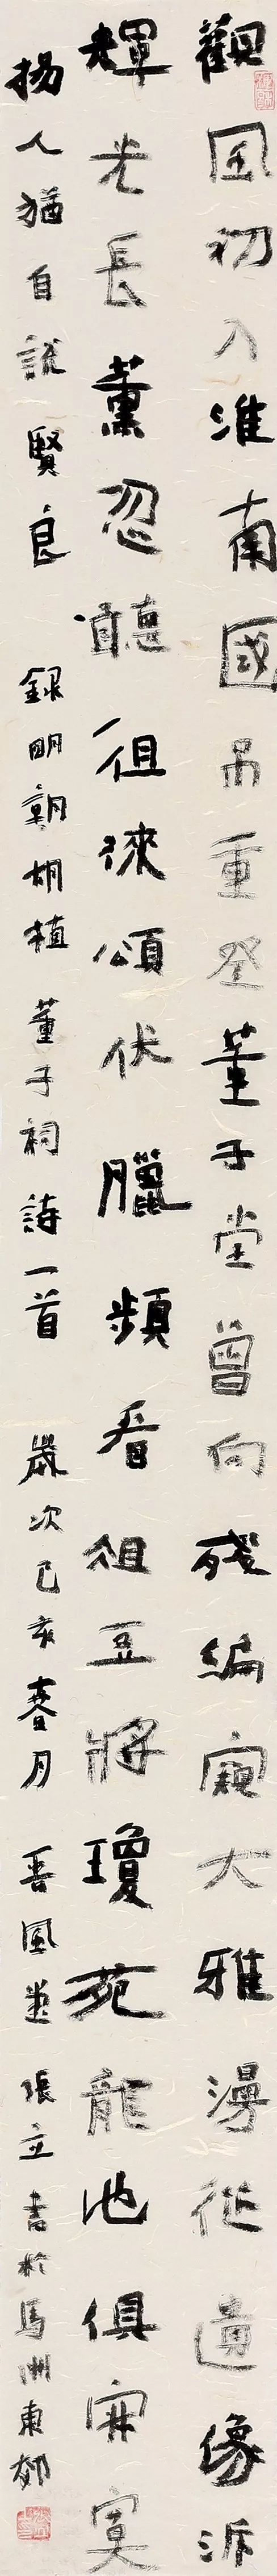 觀風初入淮南國吊重登董子堂曾向殘編窺大雅漫從遺像泝
輝光長薰忽聽徂徠頌伏臘頻看俎豆將瓊苑龍池俱寂寞
揚人猶自說賢良 錄明朝胡植董子祠詩一首 歲次己亥春月 風堂 張立書於馬洲東郊